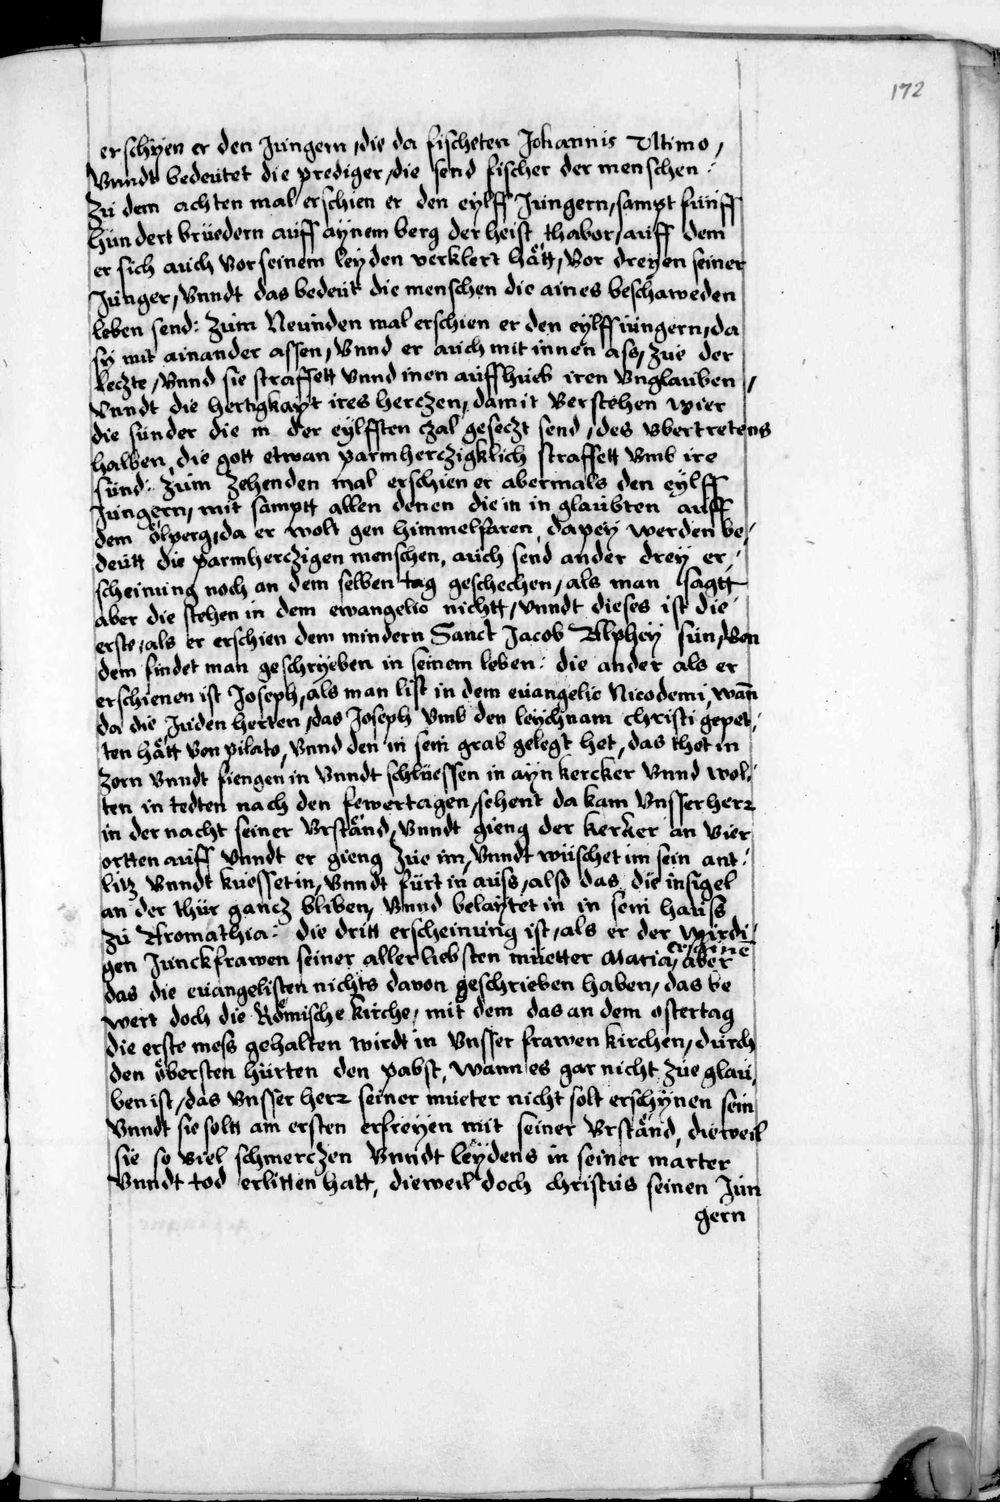 172
erschÿen er den Jungern, die da fischeten Johannis Vltimo,
Vnndt bedeütet die prediger, die send fischer der menschen:
Zu dem achten mal erschien er den eylff Jungern, sampt fünff
hundert brüedern auff aÿnem berg der heist thabor, auff dem
er sich auch vor seinem leyden verklert hätt, vor dreÿen seiner
Junger, Vnndt das bedeüt die menschen die aines beschaweden
leben send: Zum Neünden mal erschien er den eylff iungern, da
sÿ mit ainander assen, Vnnd er auch mit innen ass, zue der
leczte, Vnnd sie straffett vnnd inen auffhueb iren Vnglauben,
Vnndt die hertigkaÿt ires herczen, damit Verstehen wier
die sünder die in der eylfften czal geseczt send, des vbertretens
halben, die gott etwan parmherczigklich straffett Vmb ire
sünd: Züm zehenden mal erschien er abermals den eylff
Jungern, mit samptt allen denen die in in glaubten auff
dem ölperg, da er wolt gen himmelfaren, dapeÿ werden be-
deütt die parmherczigen menschen, auch send ander dreÿ er-
scheinung noch an dem selben tag geschechen, als man sagtt
aber die stehen in dem ewangelio nichtt, Vnndt dieses ist die
erste, als er erschien dem mindern Sanct Jacob Alpheÿ sun, Von
dem findet man geschrÿeben in seinem leben: die ander als er
erschienen ist Joseph, als man list in dem euangelio Nicodemi, wan̄
da die Juden herten, das Joseph Vmb den leÿchnam christi gepet-
ten hätt von pilato, Vnnd den in sein grab gelegt het, das thet in
zorn Vnndt fiengen in Vnndt schlüessen in aÿn kercker Vnnd wol-
ten in tedten nach den fewertagen, sehent da kam Vnsser herr
in der nacht seiner Vrständ, Vnndt gieng der kercker an vier
ortten auff Vnndt er gieng zue im, Vnndt wüschet im sein ant-
litz Vnndt küesset in, Vnndt fürt in auss, also das die insigel
an der thür gancz bliben, Vnnd belaÿtet in in sein hauss
zu Aromathia: die dritt erscheinung ist, als er der wirdi-
gen Junckfrawen seiner aller liebsten müetter Maria, aber
das die euangelisten nichts davon geschrieben haben, das be
wert doch die Römische kirche, mit dem das an dem ostertag
die erste mess gehalten wirdt in Vnsser frawen kirchen, durch
den öbersten hürten den pabst, wann es gar nicht zue glau-
ben ist, das Vnsser herr seiner mueter nicht solt erschÿnen sein
Vnndt sie soltt am ersten erfreÿen mit seiner Vrständ, dieweil
sie so viel schmerczen Vnndt leÿdens in seiner marter
Vnndt tod erlitten hatt, dieweil doch christus seinen Jün
gern